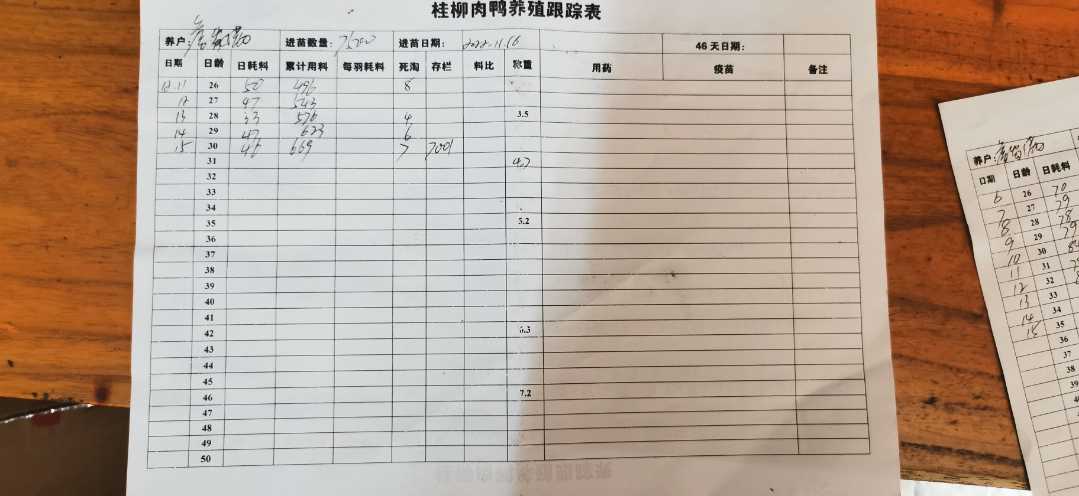 桂柳肉鸭养殖跟踪表
养户: 进苗数量: 进苗日期: 2022.11.16 46天日期:
日期 日龄 日耗料 累计用料 每羽耗料 死淘 存栏 料比 称重 用药 疫苗 备注
12.11 26 50 496 8
12 27 47 543
13 28 33 576 4 3.5
14 29 47 623 6
15 30 46 669 7 7001
31 4.7
32
33
34
35 5.2
36
37
38
39
40
41
42 6.3
43
44
45
46 7.2
47
48
49
50
养户:
日期 日龄 日耗料
6 26 70
7 27 79
8 28 78
9 29 79
10 30
11 31
12 32
13 33
14 34
15 35
36
37
38
39